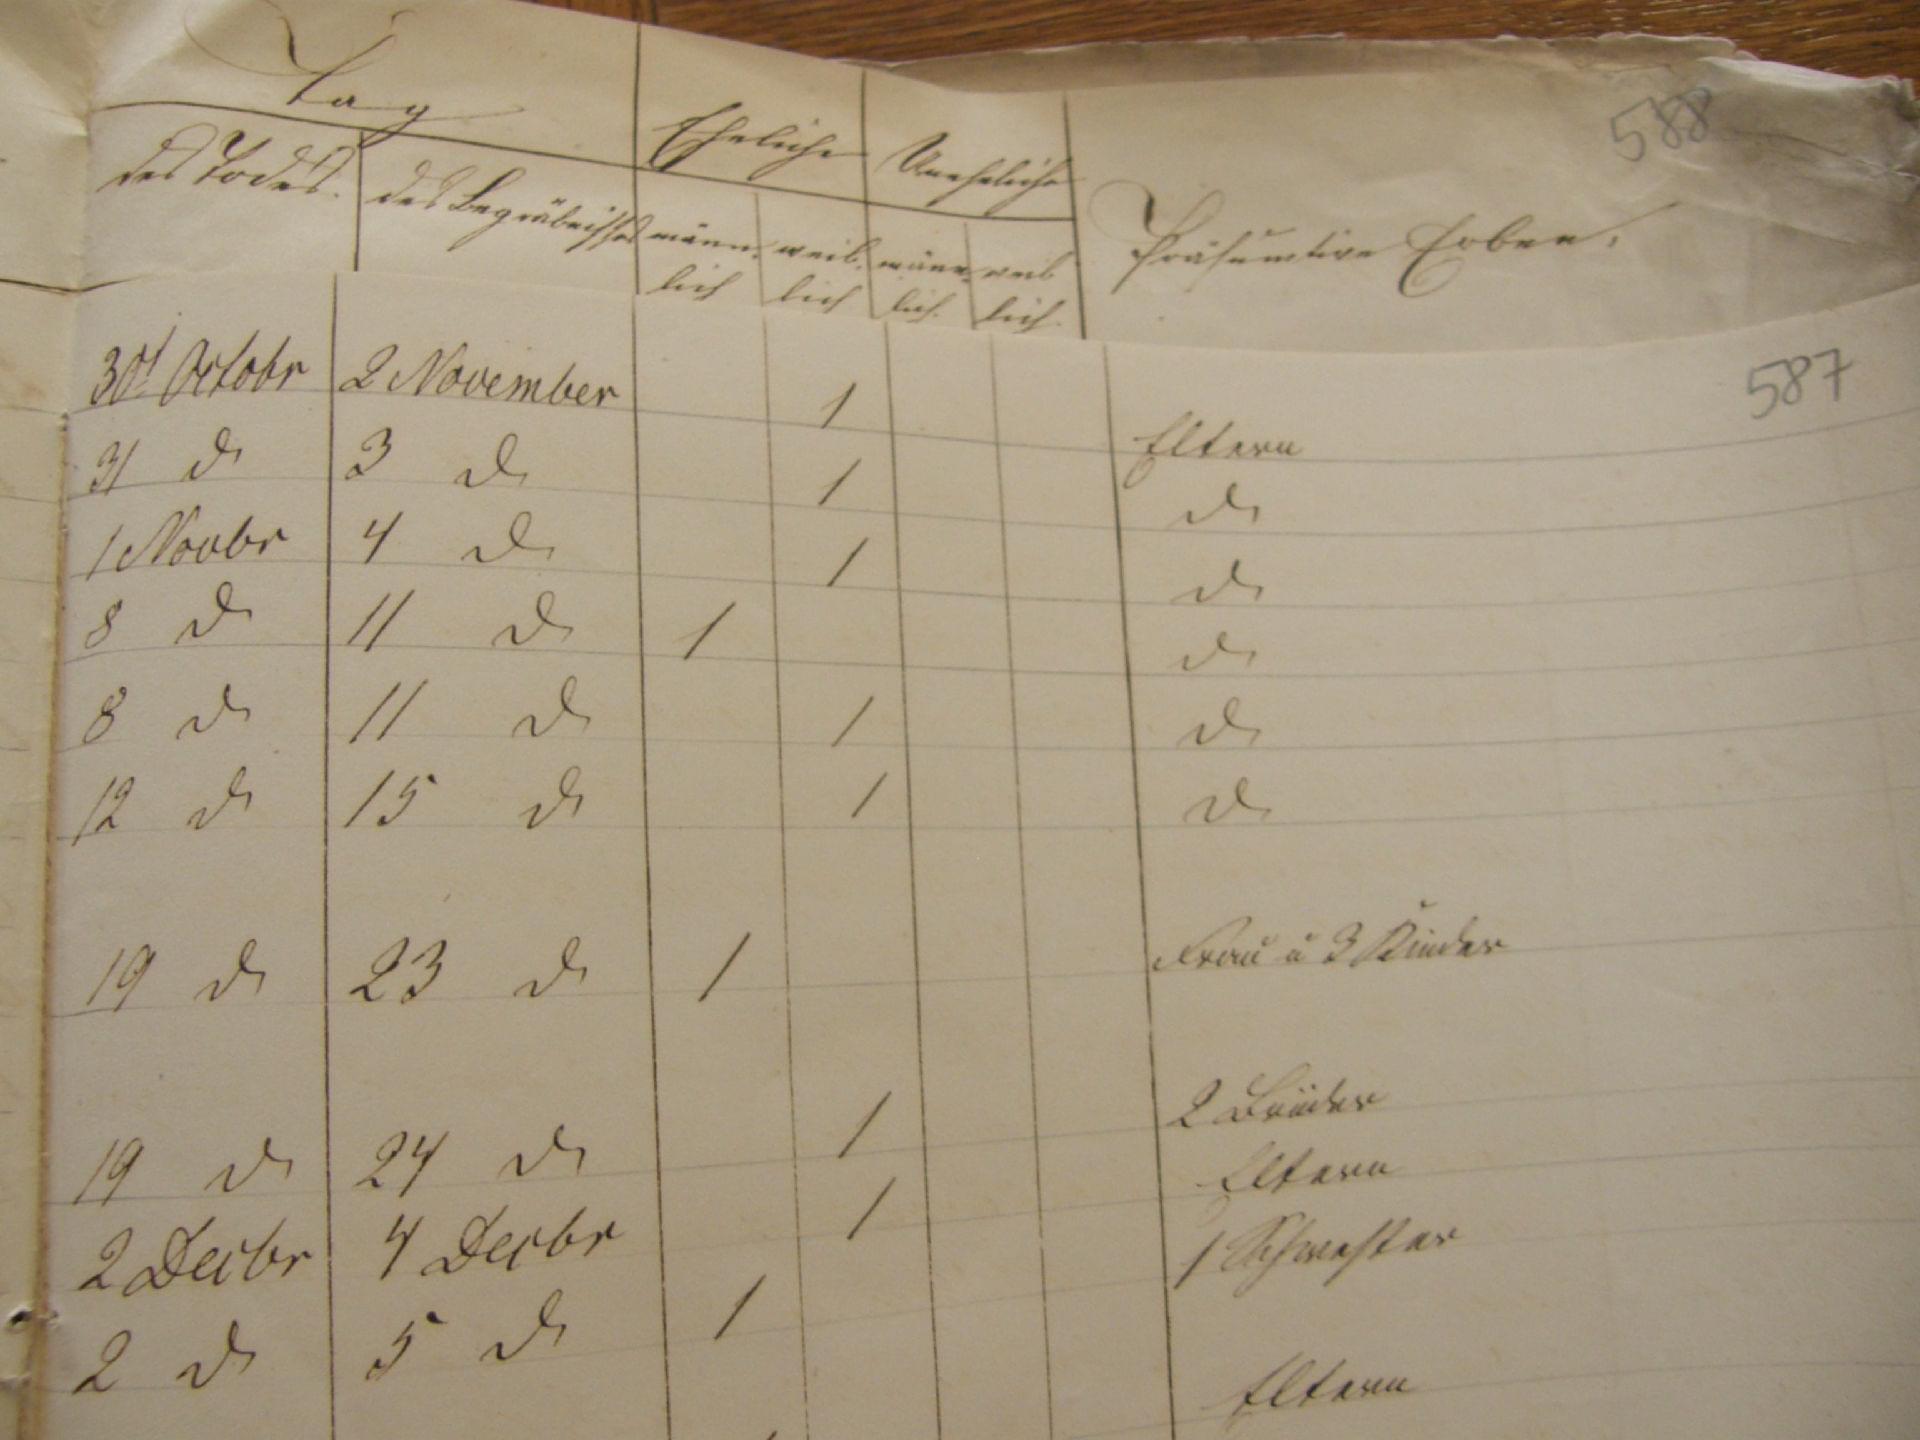 Tag
588
des Todes. des Begräbnisses Eheliche Uneheliche Präsumtive Erben.
männ- weib- männ- weib
lich lich lich. lich.
587
30t Octobr 2 November 1 Eltern
31 do 3 do 1 do
1 Novbr 4 do 1 do
8 do 11 do 1 do
8 do 11 do 1 do
12 do 15 do 1 do
19 do 23 do 1 Frau u 3 Kinder
19 do 24 do 1 2 Brüder
2 Decbr 4 Decbr 1 Eltern
2 do 5 do 1 1 Schwester
Eltern